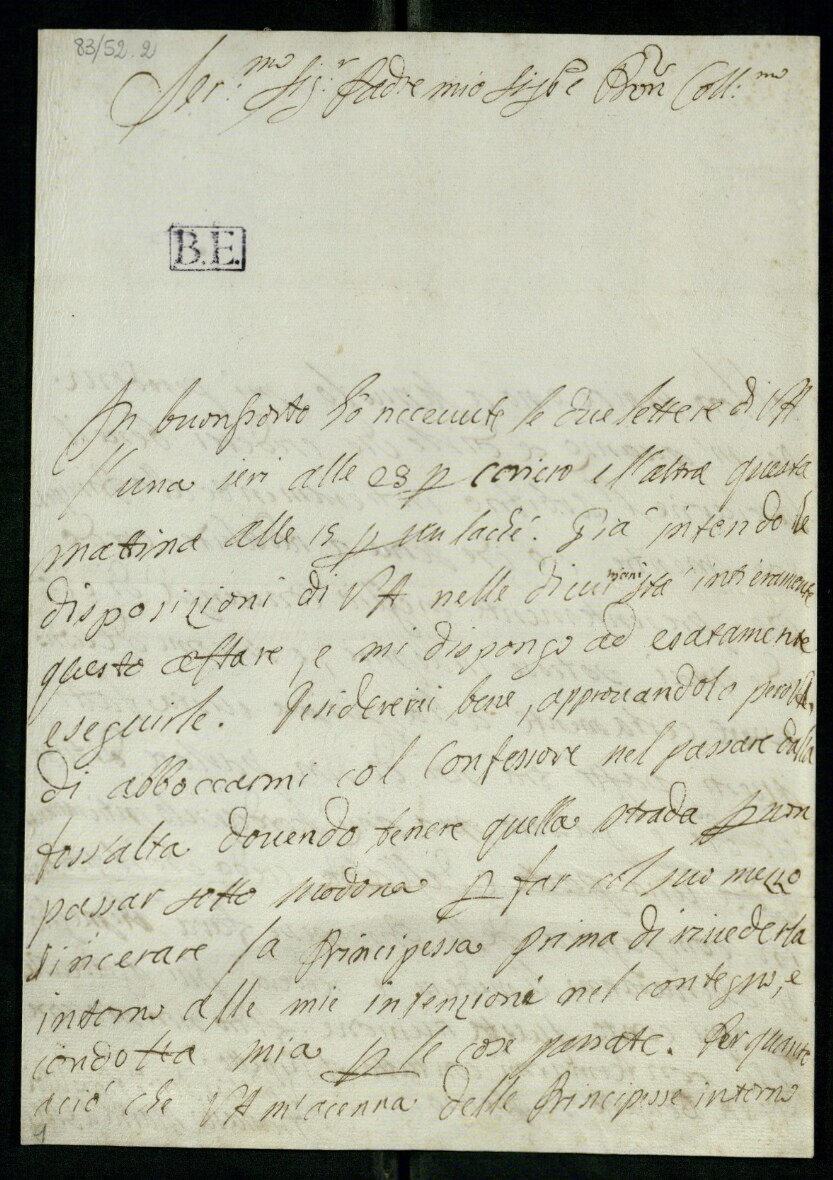 83/52.2
Ser.mo Sig.r Padre mio Sig.re Coll.mo
B.E.
In buonporto hò riceuute le due lettere di VA
l'una ieri alle 23 p coriero e l'altra questa
mattina alle 15 p un lachè. Già intendo le
disposizioni di VA nelle di cui mani stà intieramente
questo affare, e mi dispongo ad esatamente
eseguirle. Desidererei bene, approuandolo però VA,
di abboccarmi col Confessore nel passare dalla
fossalta douendo tenere quella strada p non
passar sotto Modona p far col suo mezzo
sincerare la Principessa prima di riuederla
intorno alle mie intenzioni nel contegno, e
condotta mia p le cose passate. Per quanto
a ciò che VA m'acenna delle Principesse intorno